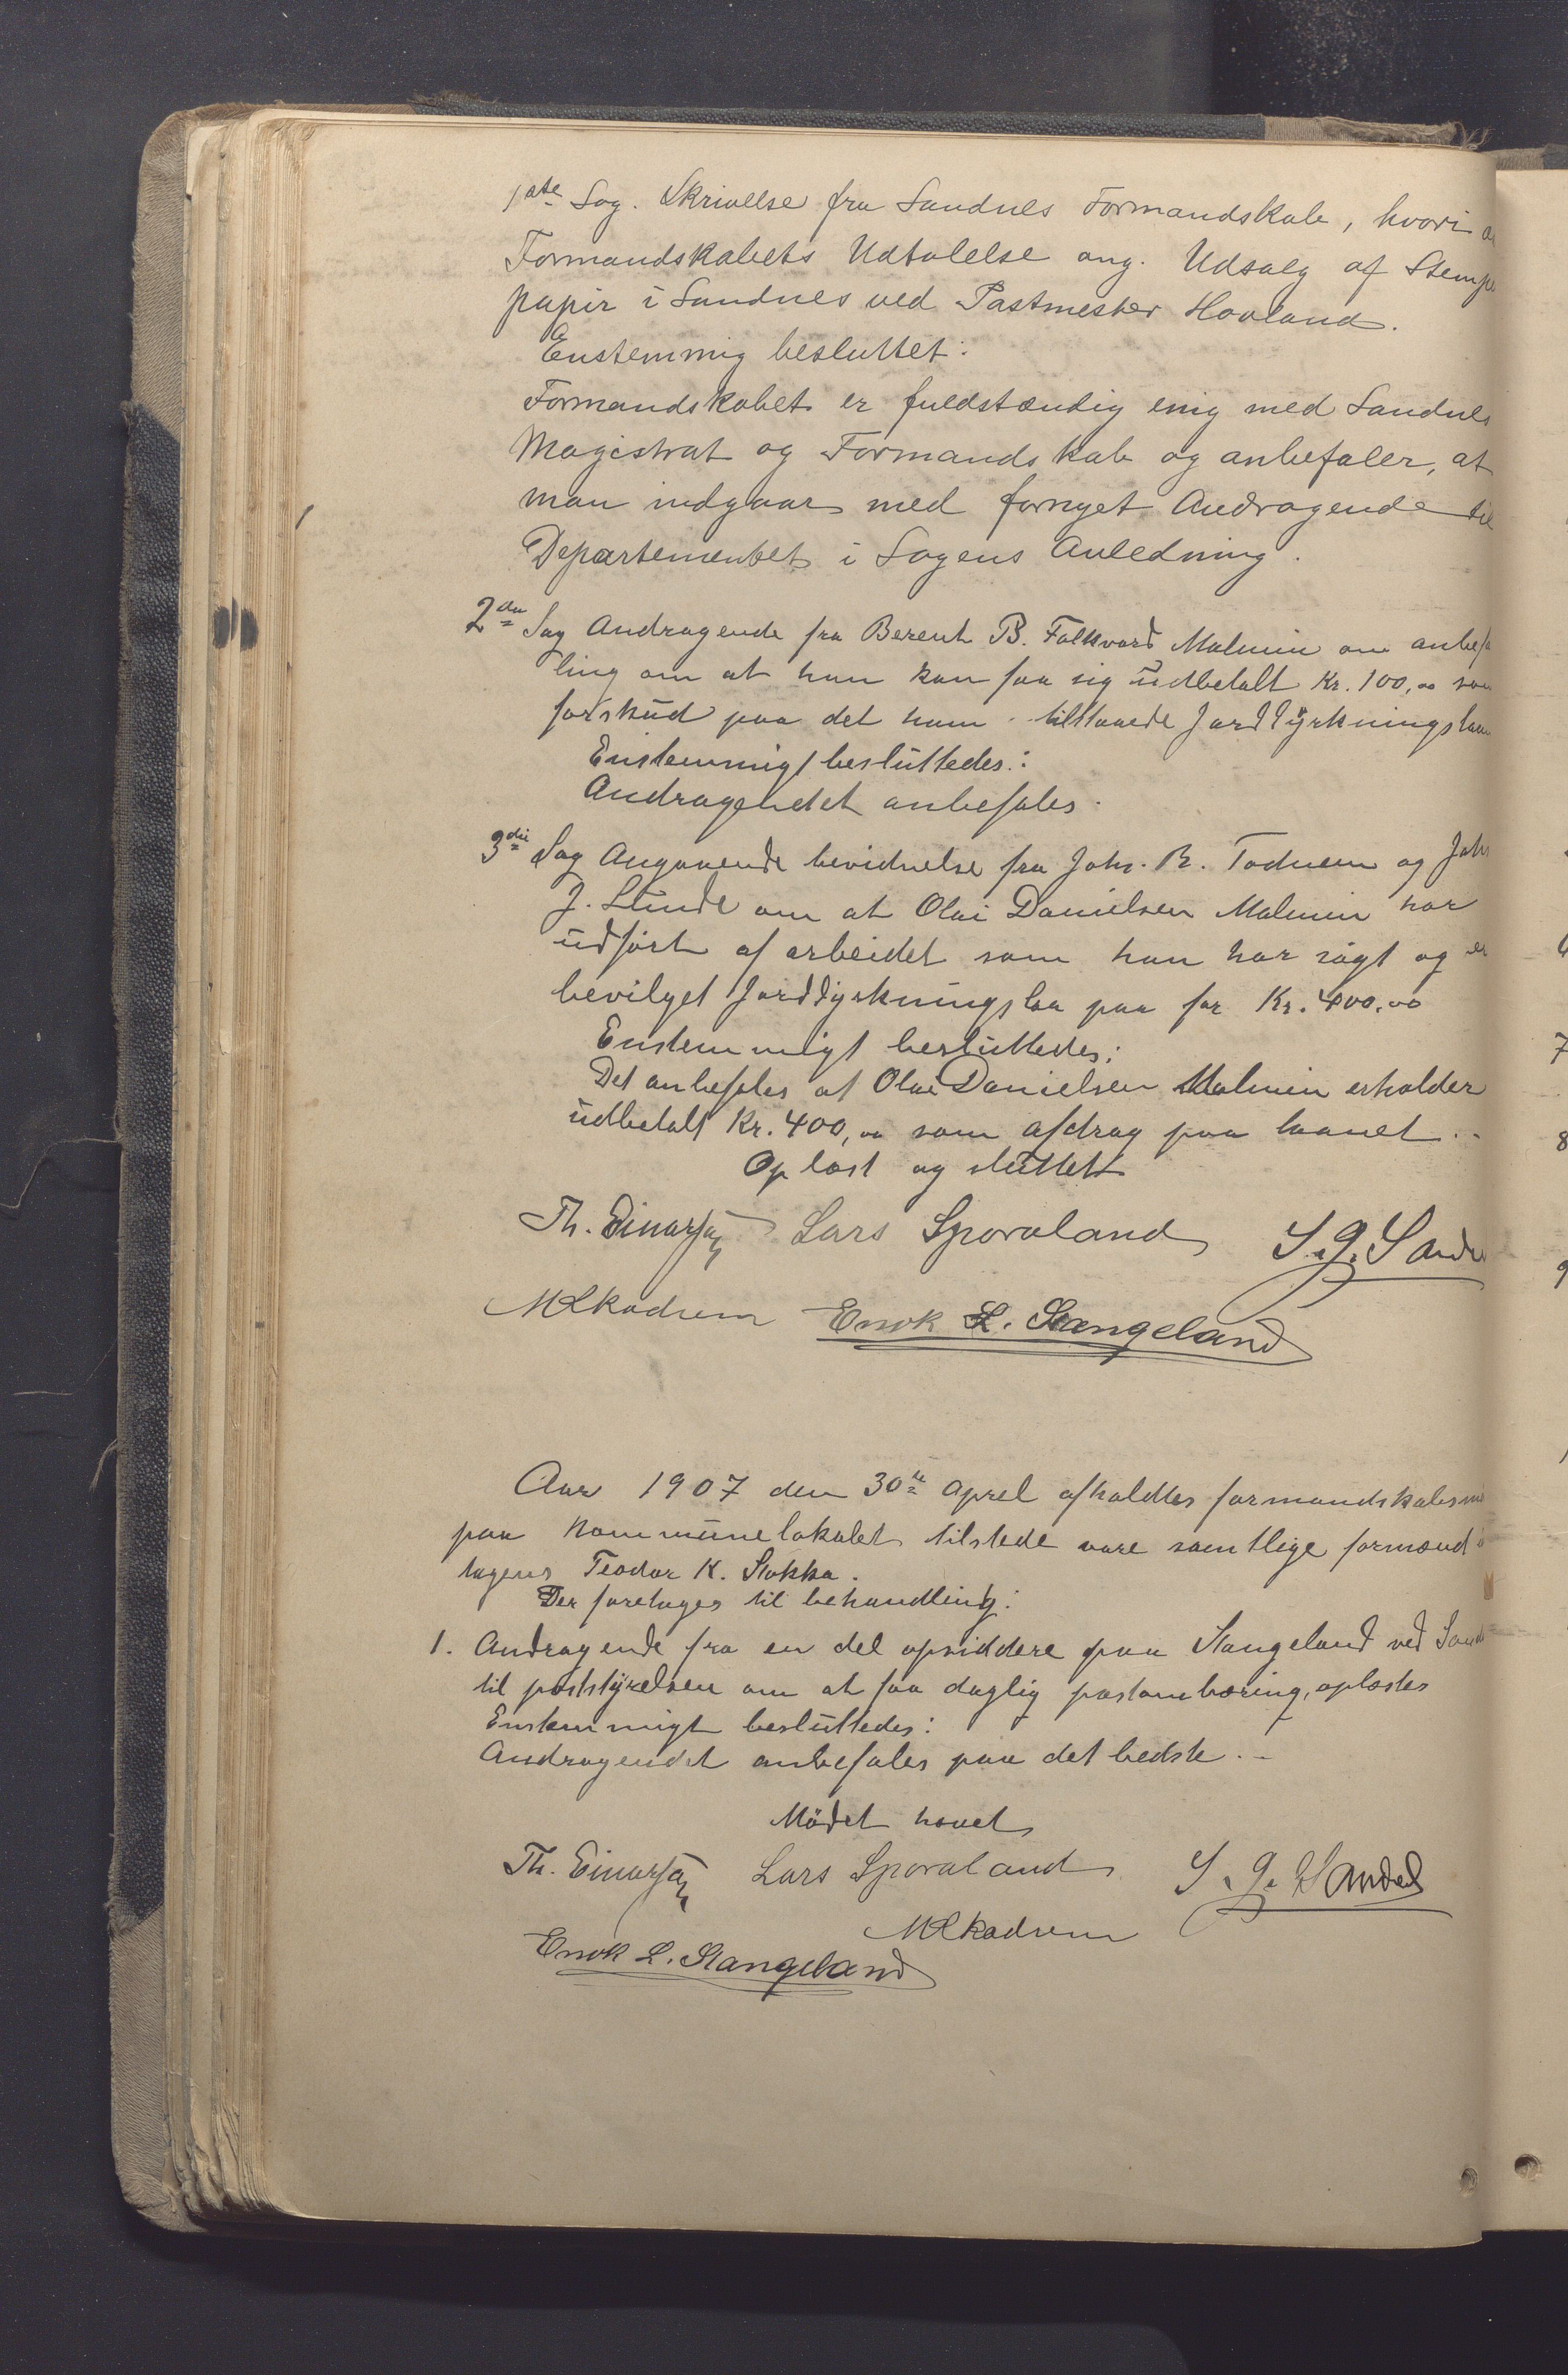 1ste Sag. Skrivelse fra Sandnes Formandskab, hvori
Formandskabets Udtalelse ang. Udsalg af Stemp
papir i Sandnes ved Postmester Hovland.
Enstemmig besluttet:
Formandskabet er fuldstændig enig med Sandnes
Magistrat og Formandskab og anbefaler, at
man indgaar med fornyet Andragende til
Departementet i Sagens Anledning.
2den Sag Andragende fra Berent B. Folkvord Malmin om anbefa
ling om at han kan faa sig udbetalt Kr. 100,00 som
forskud paa det ham tilstaaede Jorddyrkningslaan
Enstemmigt besluttedes:
Andragendet anbefales.
3die Sag Angaaende bevidnelse fra Johs. B. Todnem og Johs
J. Lunde om at Olai Danielsen Malmin har
udført af arbeidet som han har søgt og er
bevilget Jorddyrkningslaa paa for Kr. 400.00
Enstemmigt besluttedes:
Det anbefales at Olai Danielsen Malmin erholder
udbetalt Kr. 400,00 som afdrag paa laanet..
Oplæst og sluttet
Th. Einarsen Lars Sporaland S. G. Sande
M Skadsem Enok L. Stangeland
Aar 1907 den 30te aprel afholdtes formandskabsmø
paa Kommunelokalet tilstede vare samtlige formænd
tagens Teodor K. Stokka.
Der foretages til behandling:
1. Andragende fra en del opsiddere paa Stangeland ved Sand
til poststyrelsen om at faa daglig postombæring, oplæstes
Enstemmigt besluttedes:
Andragendet anbefales paa det bedste.-
Mødet hævet
Th. Einarsen Lars Sporaland S. G. Sandes
M Skadsem
Enok L. Stangeland